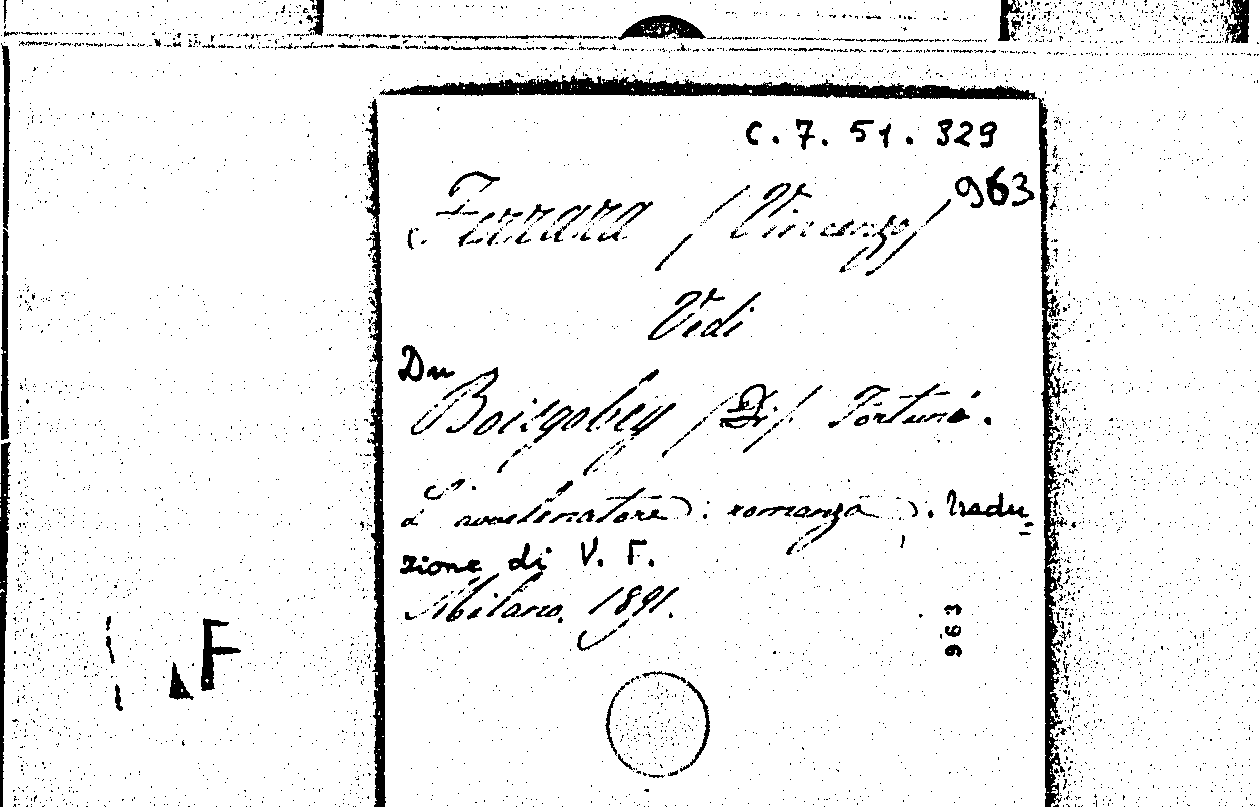 C. 7. 51. 329
963
Ferrara (Vincenzo)
Vedi
Du
Boisgobey (Di) Fortuné.
L'avvelenatore: romanzo. Tradu-
zione di V. F.
Milano, 1891.
963
F